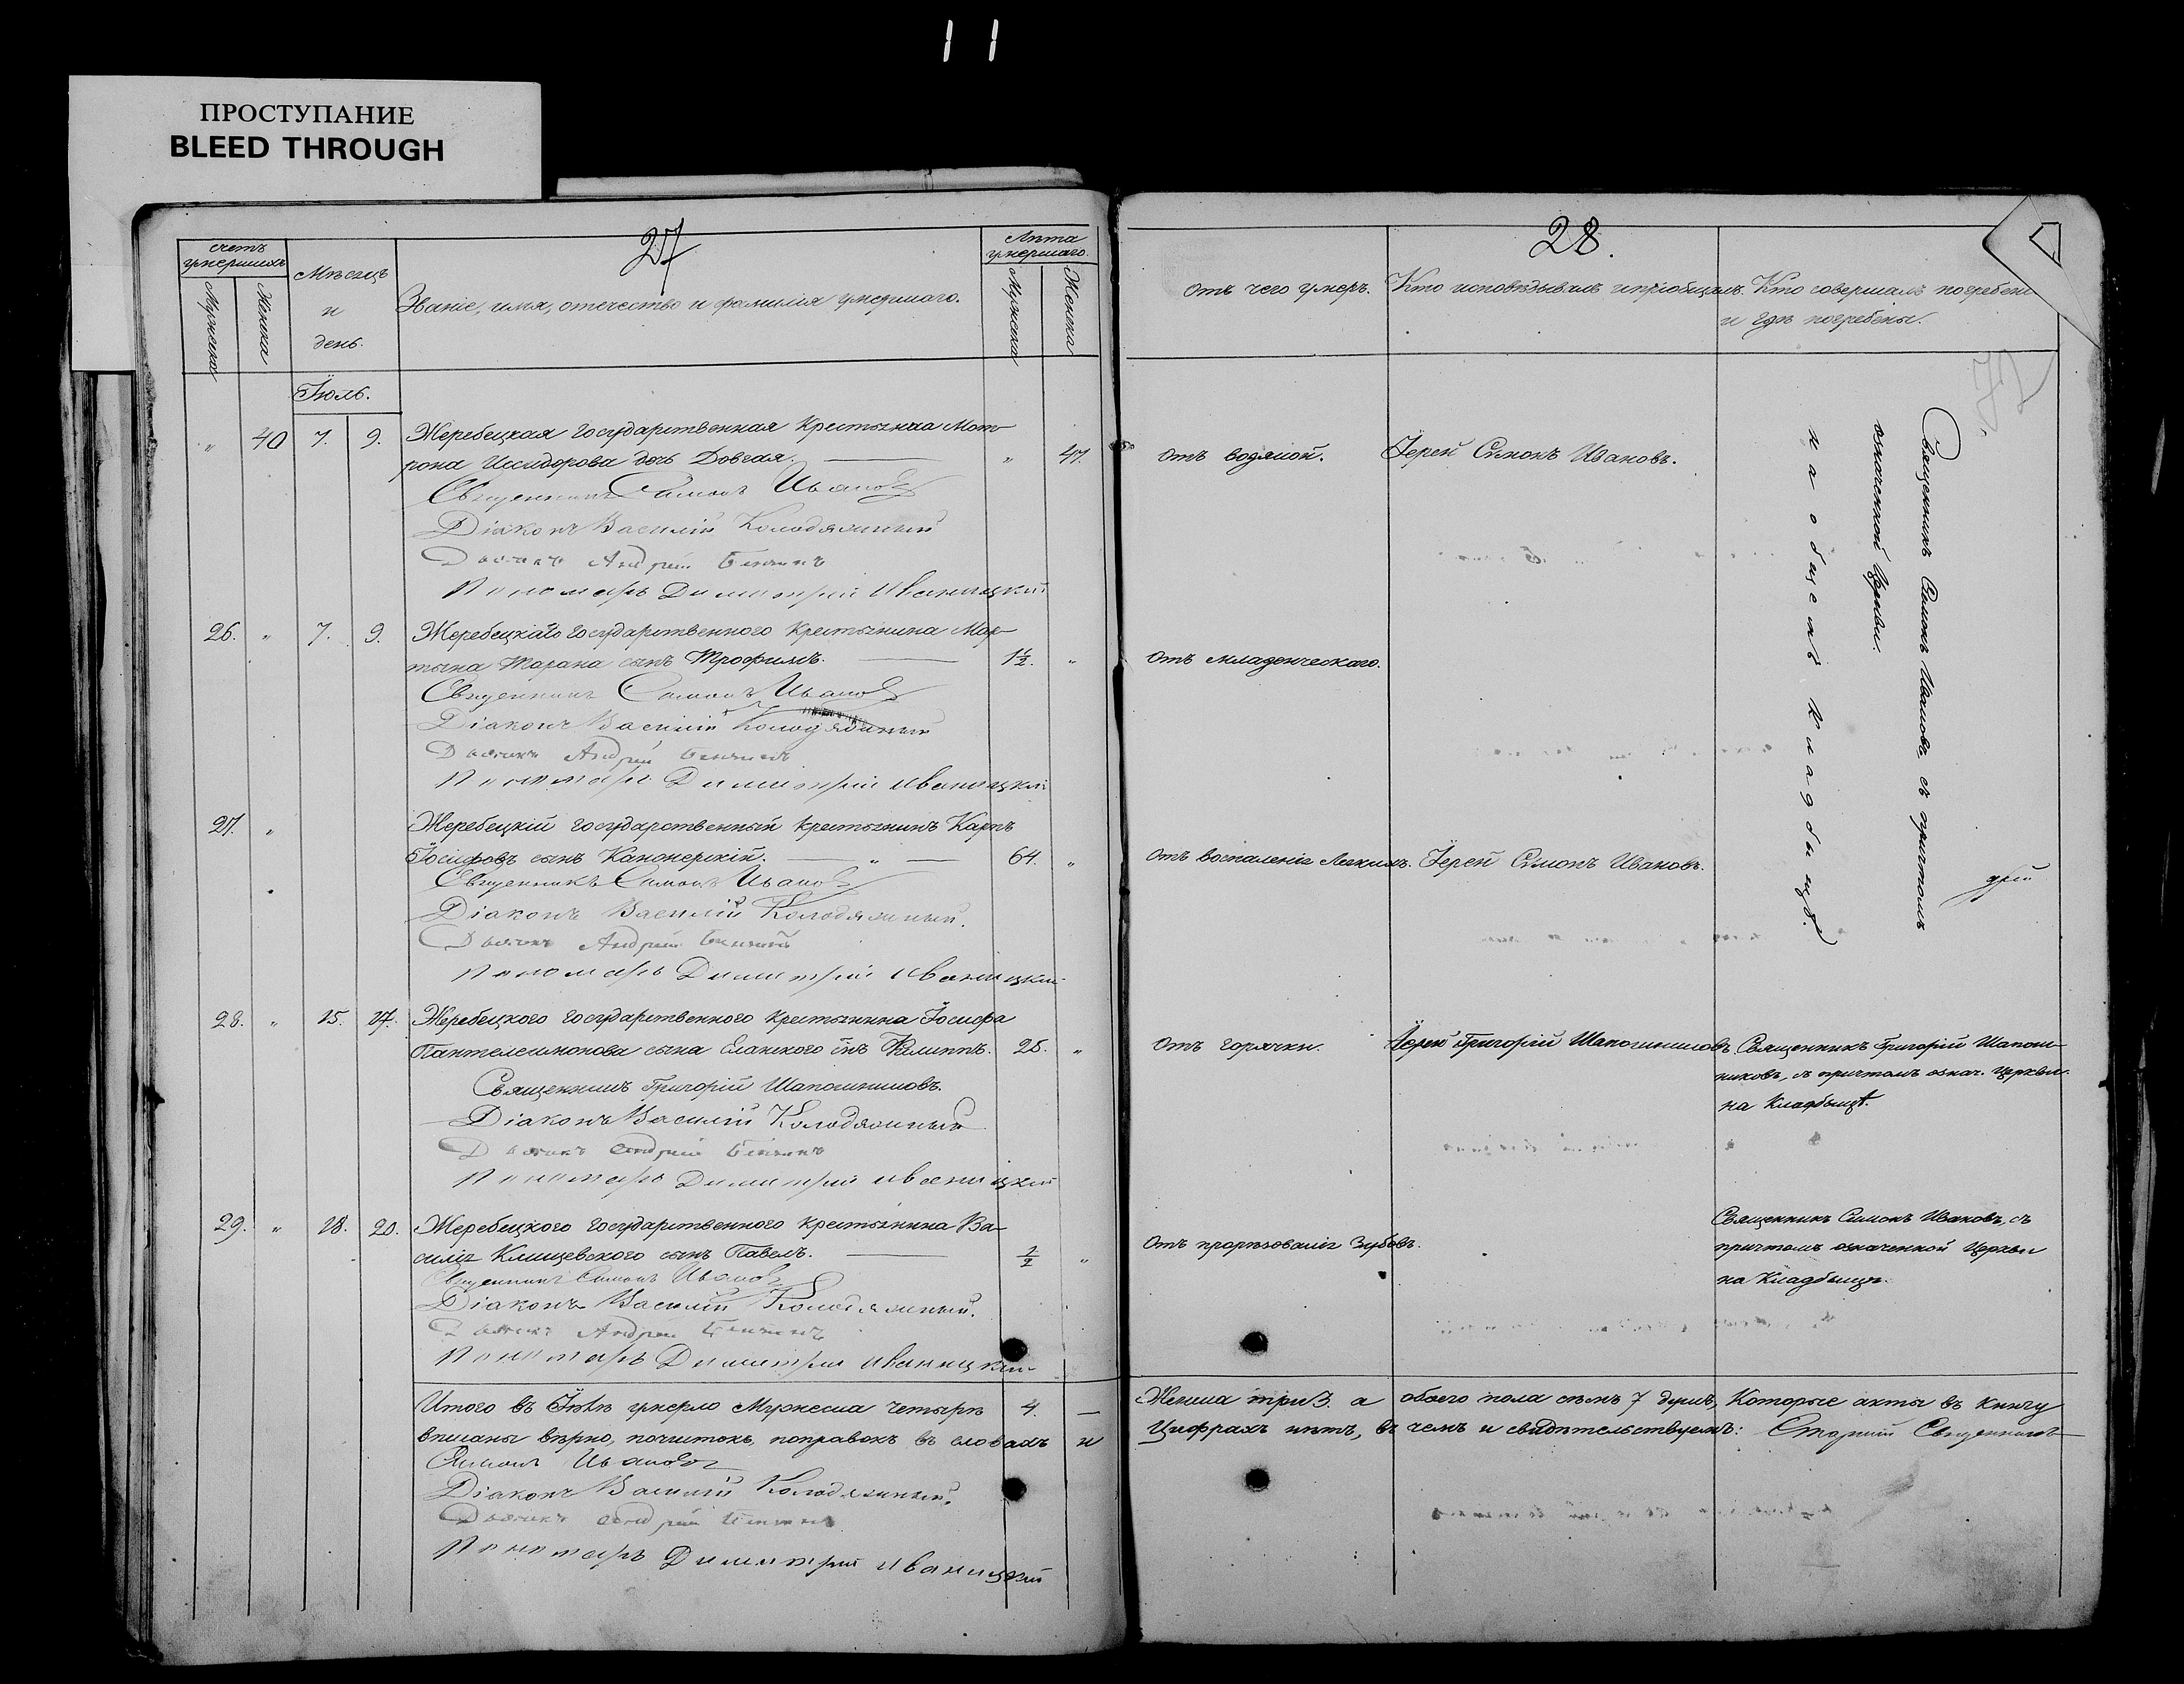 11
ПРОСТУПАНИЕ
BLEED THROUGH
27
счетъ умершихъ
Мужеска
Женска
Мѣсяцъ и день.
Званіе, имя, отечество и фамилія умершаго.
Лѣта умершаго.
Мужеска
Женска
Іюль.
" 40 7. 9. Жеребецкая государственная крестьянка Мат-
рона Исидорова дочь Довгая. " 47.
Священникъ Симонъ Ивановъ
Діаконъ Василій Колодяжный
Дьячокъ Андрей
Пономарь Димитрій Иваницкій
26. " 7. 9. Жеребецкаго государственного крестьянина Мар-
тына Тарана сынъ Трофимъ. 1½. "
Священникъ Симонъ Ивановъ
Діаконъ Василій Колодяжный
Дьячокъ Андрей
Пономарь Димитрій Иваницкій
27. " Жеребецкій государственный крестьянинъ Карпъ
Іосифовъ сынъ Канонерскій. " 64. "
Священникъ Симонъ Ивановъ
Діаконъ Василій Колодяжный.
Дьячокъ Андрей
Пономарь Димитрій Иваницкій
28. " 15. 17. Жеребецкого государственного крестьянина Іосифа
Пантелеимонова сына Еланского снъ Филиппъ. 25. "
Священникъ Григорій Шапошниковъ.
Діаконъ Василій Колодяжный
Дьячокъ Андрей
Пономарь Димитрій Иваницкій
29. " 18. 20. Жеребецкого государственного крестьянина Ва-
силія Клищевского сынъ Павелъ. ½ "
Священникъ Симонъ Ивановъ
Діаконъ Василій Колодяжный.
Дьячокъ Андрей
Пономарь Димитрій Иваницкій
Итого въ Іюлѣ умерло Мужеска четыре 4. —
вписаны вѣрно, почистокъ, поправокъ въ словахъ и
Симонъ Ивановъ
Діаконъ Василій Колодяжный.
Дьячокъ Андрей
Пономарь Димитрій Иваницкій
28.
Отъ чего умеръ.
Кто исповѣдывалъ и пріобщалъ.
Кто совершалъ погребеніе
и гдѣ погребены.
отъ водяной. Іерей Симонъ Ивановъ.
Священникъ Симонъ Ивановъ, съ причтомъ
означенной Церкви.
на общемъ Кладбищѣ.
отъ младенческаго.
отъ воспаленія Легкихъ. Іерей Симонъ Ивановъ.
отъ горячки. Іерей Григорій Шапошниковъ. Священникъ Григорій Шапош-
никовъ, съ причтомъ означ. Церкви
на Кладбищѣ.
отъ прорѣзованія Зубовъ. Священникъ Симонъ Ивановъ, съ
причтомъ означенной Церкви
на Кладбищѣ.
Женска три 3. а обоего пола семь 7 душъ, Которые акты въ книгу
Цифрахъ нѣтъ, въ чемъ и свидѣтельствуемъ: Старшій Священникъ